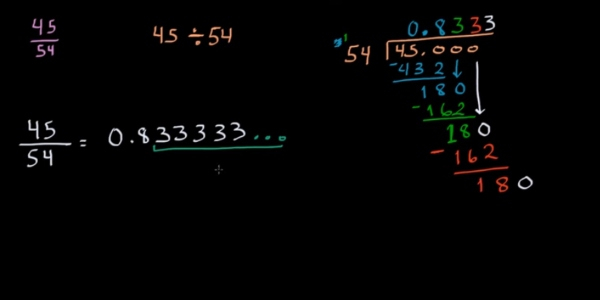 45
54
45 ÷ 54
0.8333
54 45.000
-432
180
-162
180
-162
180
45
54
= 0.833333...